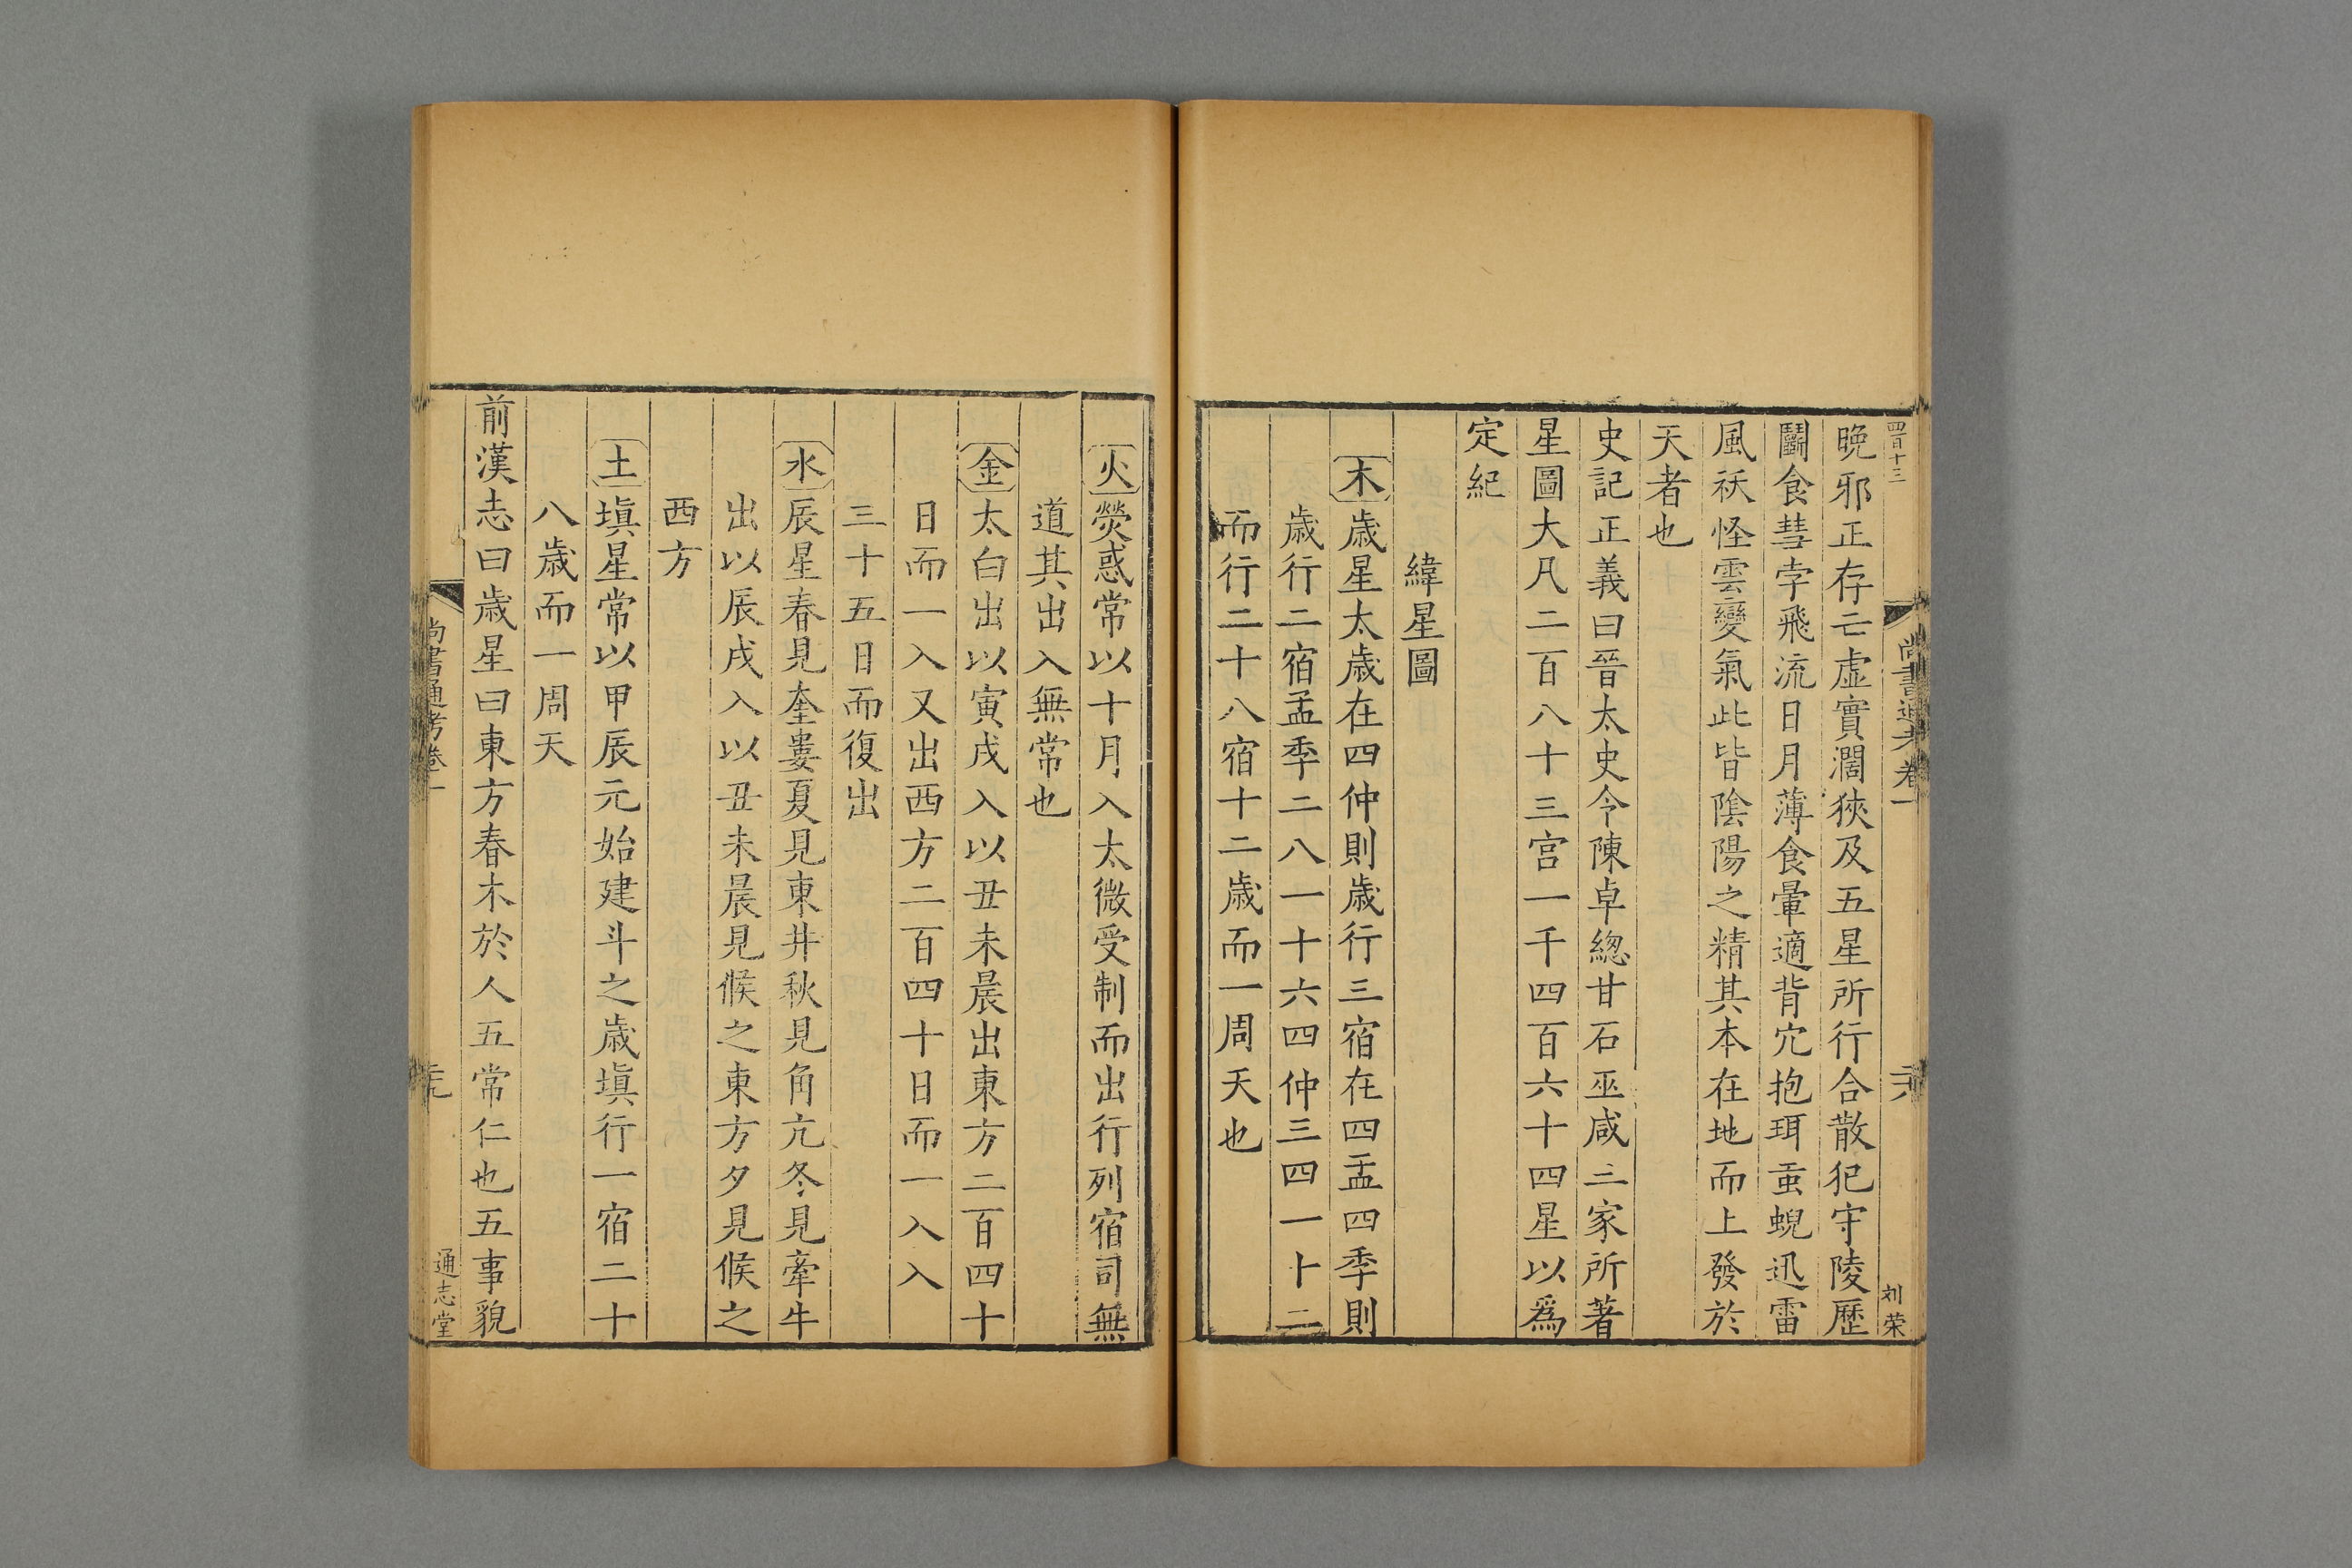 四百十三
尚書通考卷一
二六
刘荣
晚邪正存亡虛實濶狹及五星所行合散犯守陵歷
鬬食彗孛飛流日月薄食暈適背穴抱珥䖝蜺迅雷
風祅怪雲變氣此皆隂陽之精其本在地而上發於
天者也
史記正義曰晉太史令陳卓緫甘石巫咸三家所著
星圖大凡二百八十三宮一千四百六十四星以爲
定紀
緯星圖
木歲星太歲在四仲則歲行三宿在四孟四季則
歲行二宿孟季二八一十六四仲三四一十二
而行二十八宿十二歲而一周天也
火熒惑常以十月入太微受制而出行列宿司無
道其出入無常也
金太白出以寅戌入以丑未晨出東方二百四十
日而一入又出西方二百四十日而一入入
三十五日而復出
水辰星春見奎婁夏見東井秋見角亢冬見牽牛
出以辰戌入以丑未晨見候之東方夕見候之
西方
土塡星常以甲辰元始建斗之歲塡行一宿二十
八歲而一周天
前漢志曰歲星曰東方春木於人五常仁也五事貌
尚書通考卷一
二九
通志堂